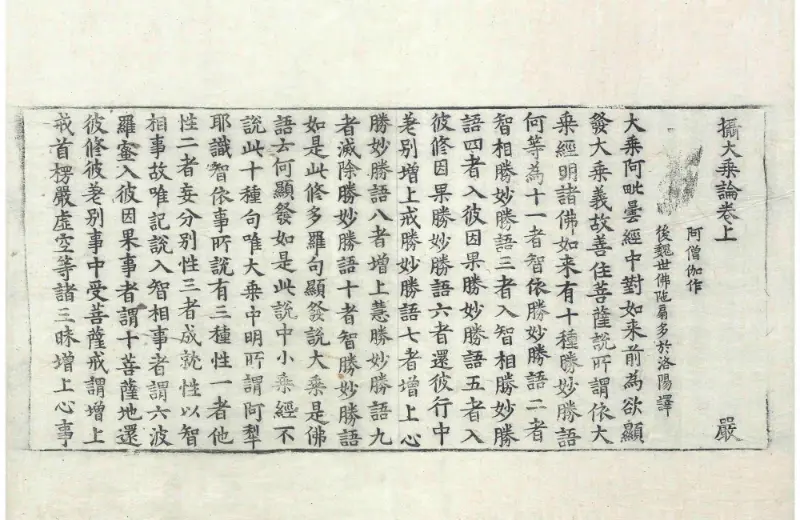 攝大乘論卷上　嚴
阿僧伽作
後魏世佛陁扇多於洛陽譯
大乘阿毗曇經中對如来前為欲顯
發大乘義故善住菩薩說所謂依大
乘經明諸佛如来有十種勝妙勝語
何等為十一者智依勝妙勝語二者
智相勝妙勝語三者入智相勝妙勝
語四者入彼因果勝妙勝語五者入
彼修因果勝妙勝語六者還彼行中
差別增上戒勝妙勝語七者增上心
勝妙勝語八者增上慧勝妙勝語九
者滅除勝妙勝語十者智勝妙勝語
如是此修多羅句顯發說大乘是佛
語云何顯發如是此說中小乘經不
說此十種句唯大乘中明所謂阿犁
耶識智依事所說有三種性一者他
性二者妄分別性三者成就性以智
相事故唯記說入智相事者謂六波
羅蜜入彼因果事者謂十菩薩地還
彼修彼差別事中受菩薩戒謂增上
戒首楞嚴虛空等諸三昧增上心事